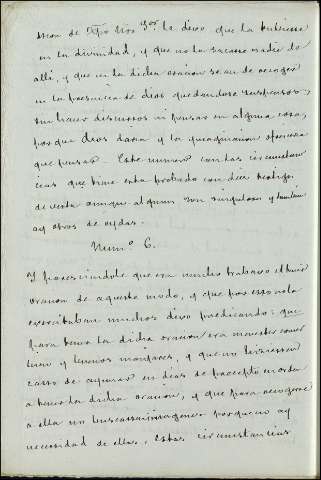 sion de Xpto Nro Sor le dixo que la pusiesse
en la divinidad, y que no la sacasse nadie de
alli, y que en la dicha oracion se an de acoger
en la presencia de dios quedandose suspensos,
sin hacer discursos ni pensar en alguna cosa,
porque dios daria y la ymaginacion ofreceria
que pensar. Este numero con las circunstan
cias que tiene esta probado con diez testigos
de vista aunque algunos son singulares y tambien
ay otros de oydas.
Numº 6.
Y pareciendole que era mucho trabajo el tener
oracion de aqueste modo, y que por esso no la
exercitaban muchos dixo predicando: que
para tener la dicha oracion era menester comer
bien y buenos manjares, y que no hiciessen
casso de ayunar en dias de precepto en orden
a tener la dicha oracion, y que para acogerse
a ella no buscassen imagenes porque no ay
necesidad de ellas. Estas circunstancias